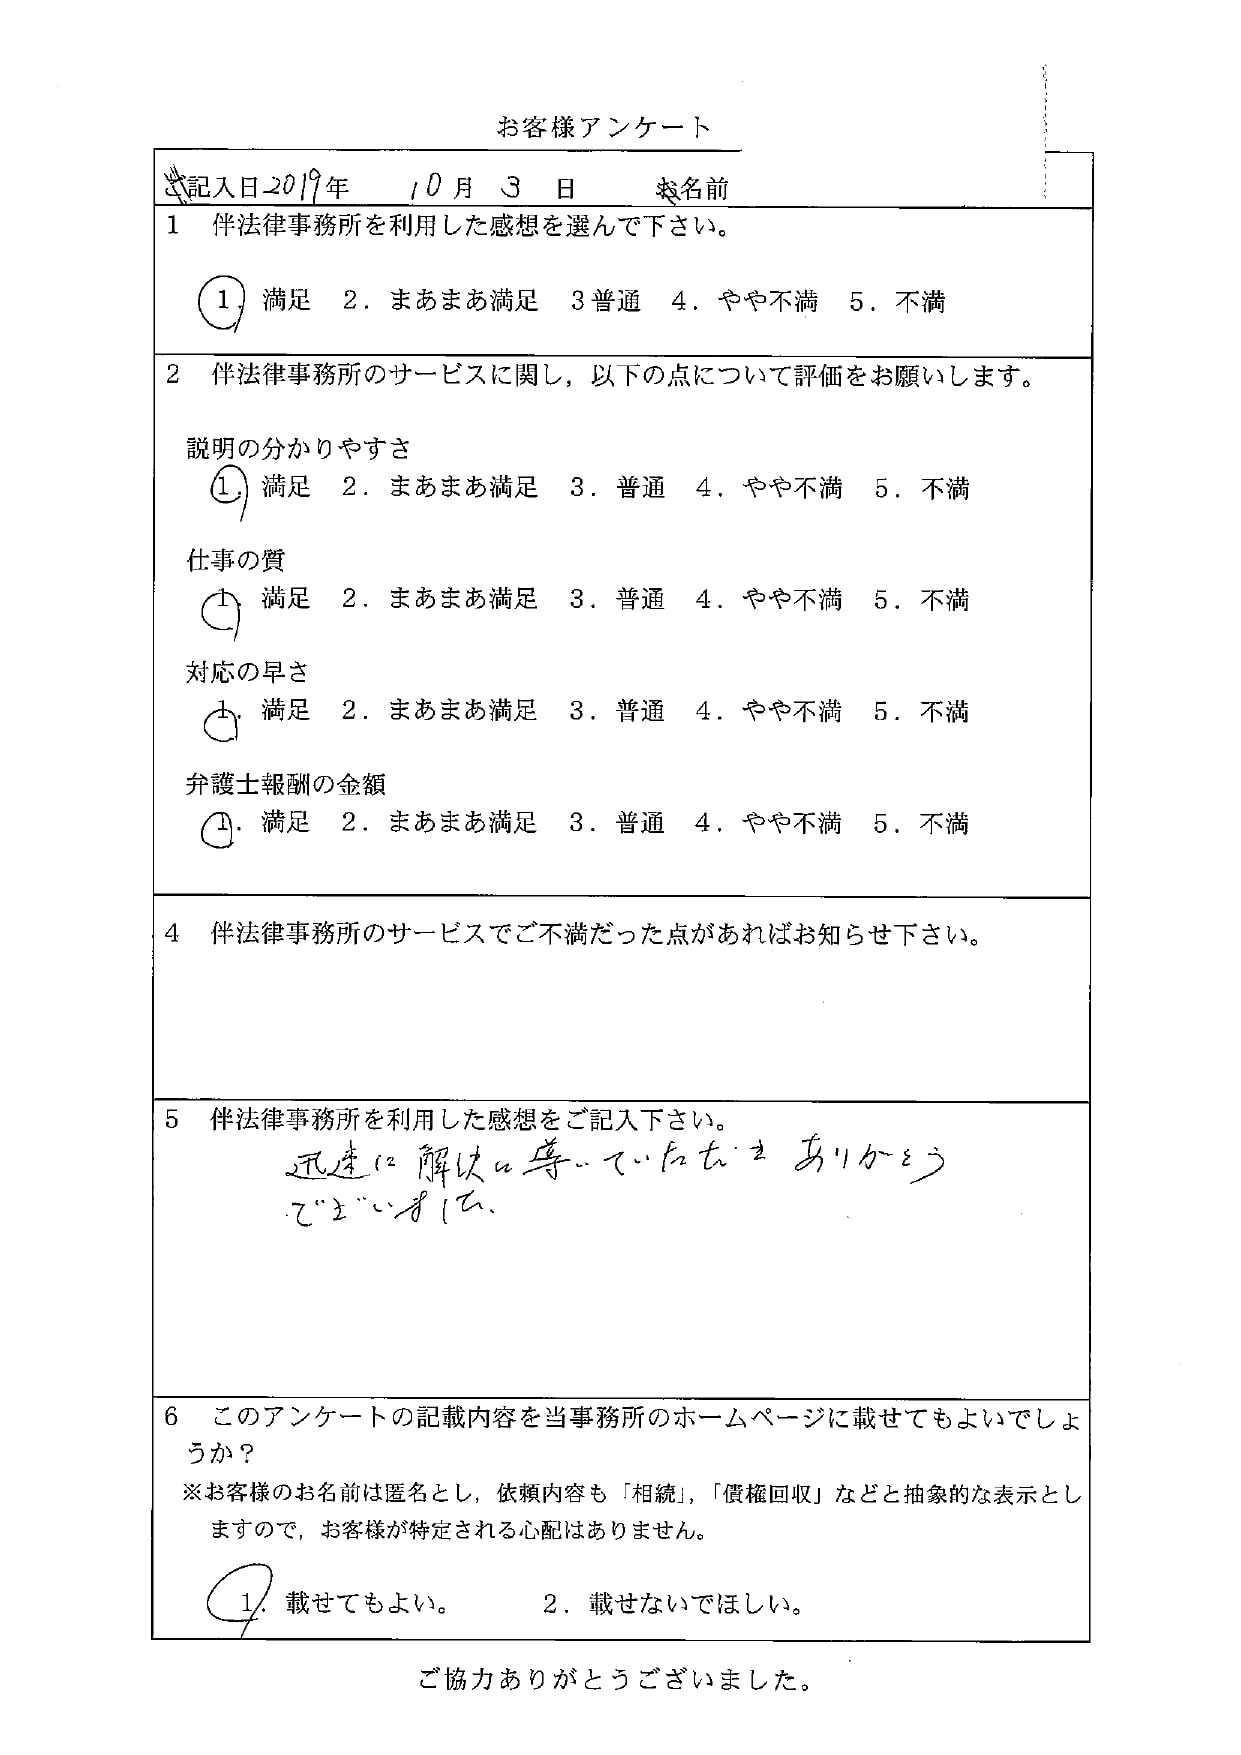 お客様アンケート
記入日2019年 10月 3 日 名前
1 伴法律事務所を利用した感想を選んで下さい。
1. 満足 2. まあまあ満足 3普通 4. やや不満 5. 不満
2 伴法律事務所のサービスに関し，以下の点について評価をお願いします。
説明の分かりやすさ
1. 満足 2. まあまあ満足 3. 普通 4. やや不満 5. 不満
仕事の質
1. 満足 2. まあまあ満足 3. 普通 4. やや不満 5. 不満
対応の早さ
1. 満足 2. まあまあ満足 3. 普通 4. やや不満 5. 不満
弁護士報酬の金額
1. 満足 2. まあまあ満足 3. 普通 4. やや不満 5. 不満
4 伴法律事務所のサービスでご不満だった点があればお知らせ下さい。
5 伴法律事務所を利用した感想をご記入下さい。
迅速に解決に導いていただき ありがとう
ございました。
6 このアンケートの記載内容を当事務所のホームページに載せてもよいでしょ
うか？
※お客様のお名前は匿名とし，依頼内容も「相続」，「債権回収」などと抽象的な表示とし
ますので，お客様が特定される心配はありません。
1. 載せてもよい。 2. 載せないでほしい。
ご協力ありがとうございました。